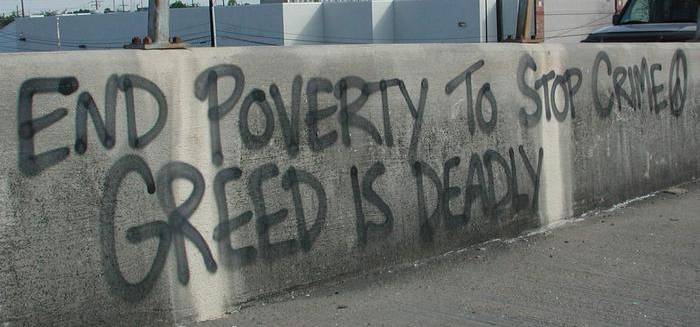 END POVERTY TO STOP CRIME
GREED IS DEADLY